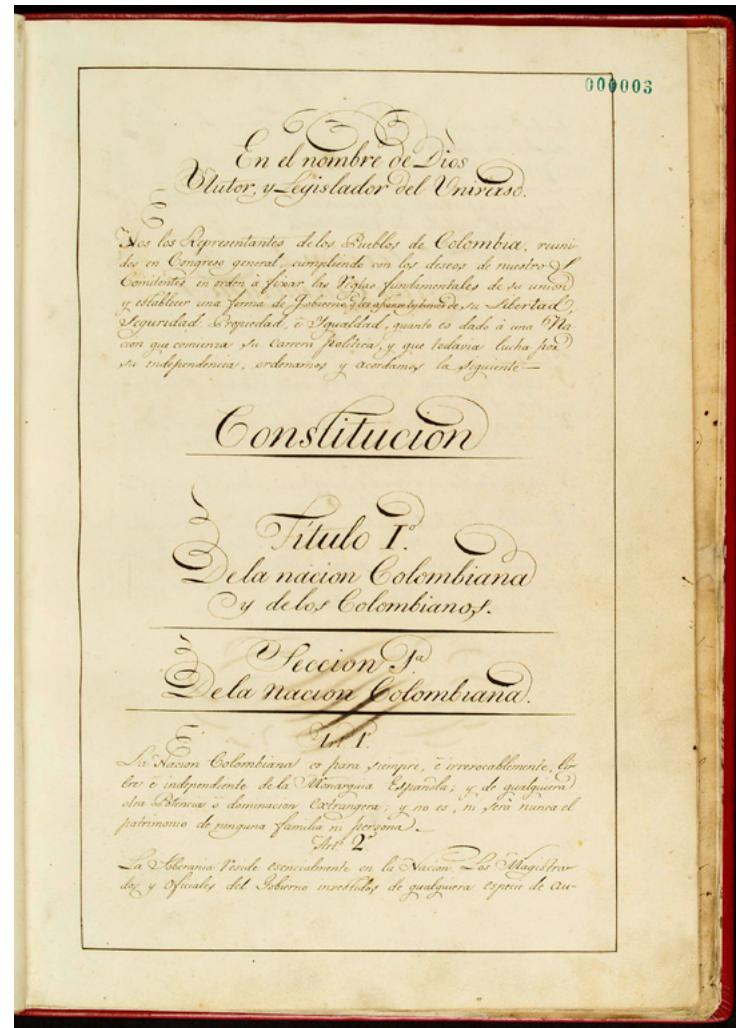 000003
En el nombre de Dios
Autor, y Legislador del Universo.
Nos los Representantes de los Pueblos de Colombia, reuni-
dos en Congreso general, cumpliendo con los deseos de nuestros
Comitentes en orden á fixar las Reglas fundamentales de su union
y establecer una forma de Gobierno q. les afianze los bienes de su Libertad,
Seguridad, Propiedad, é Igualdad, quanto es dado á una Na-
cion que comienza su carrera politica, y que todavia lucha por
su independencia, ordenamos y acordamos la siguiente—
Constitucion
Título I.º
De la nacion Colombiana
y de los Colombianos.
Seccion 1ª
De la nacion Colombiana.
Art. 1.
La Nacion Colombiana es para siempre, é irrevocablemente, li-
bre é independiente de la Monarquia Española; y de qualquiera
otra Potencia ó dominacion Extrangera; y no es, ni será nunca el
patrimonio de ninguna familia ni persona.
Artº 2º
La Soberania reside esencialmente en la Nacion. Los Magistra-
dos y Oficiales del Gobierno investidos de qualquiera especie de au-